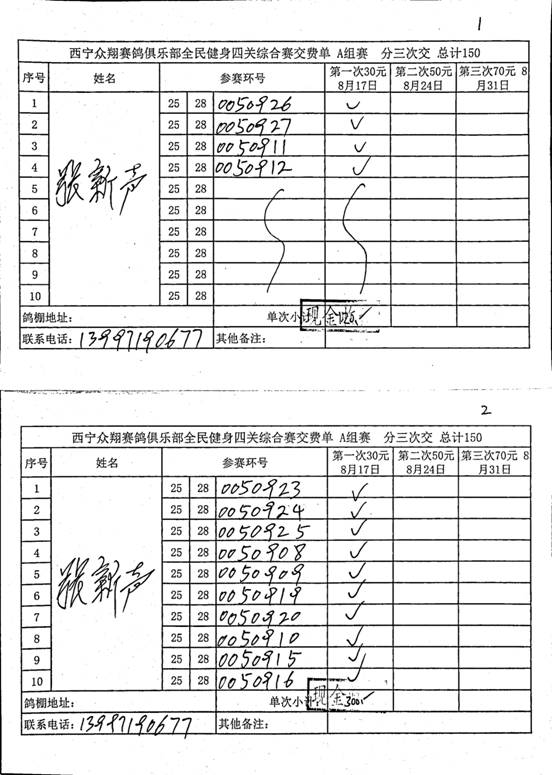 1
西宁众翔赛鸽俱乐部全民健身四关综合赛交费单 A组赛 分三次交 总计150
序号 姓名 参赛环号 第一次30元 8月17日 第二次50元 8月24日 第三次70元 8月31日
张新声
1 25 28 0050926 ✓
2 25 28 0050927 ✓
3 25 28 0050911 ✓
4 25 28 0050912 ✓
5 25 28
6 25 28
7 25 28
8 25 28
9 25 28
10 25 28
鸽棚地址: 单次小计: 现金120.
联系电话: 13997190677 其他备注:
2
西宁众翔赛鸽俱乐部全民健身四关综合赛交费单 A组赛 分三次交 总计150
序号 姓名 参赛环号 第一次30元 8月17日 第二次50元 8月24日 第三次70元 8月31日
张新声
1 25 28 0050923 ✓
2 25 28 0050924 ✓
3 25 28 0050925 ✓
4 25 28 0050908 ✓
5 25 28 0050909 ✓
6 25 28 0050919 ✓
7 25 28 0050920 ✓
8 25 28 0050910 ✓
9 25 28 0050915 ✓
10 25 28 0050916 ✓
鸽棚地址: 单次小计: 现金300.
联系电话: 13997190677 其他备注: